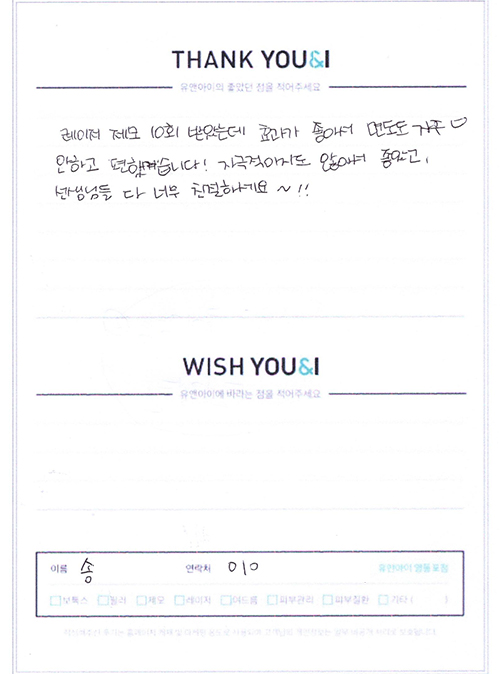 THANK YOU&I
유앤아이의 좋았던 점을 적어주세요
레이저 제모 10회 받았는데 효과가 좋아서 면도도 자주
안하고 편해졌습니다! 자극적이지도 않아서 좋았고,
선생님들 다 너무 친절하세요 ~!!
WISH YOU&I
유앤아이에 바라는 점을 적어주세요
이름 송 연락처 010 유앤아이 영등포점
보톡스 필러 제모 레이저 여드름 피부관리 피부질환 기타 ( )